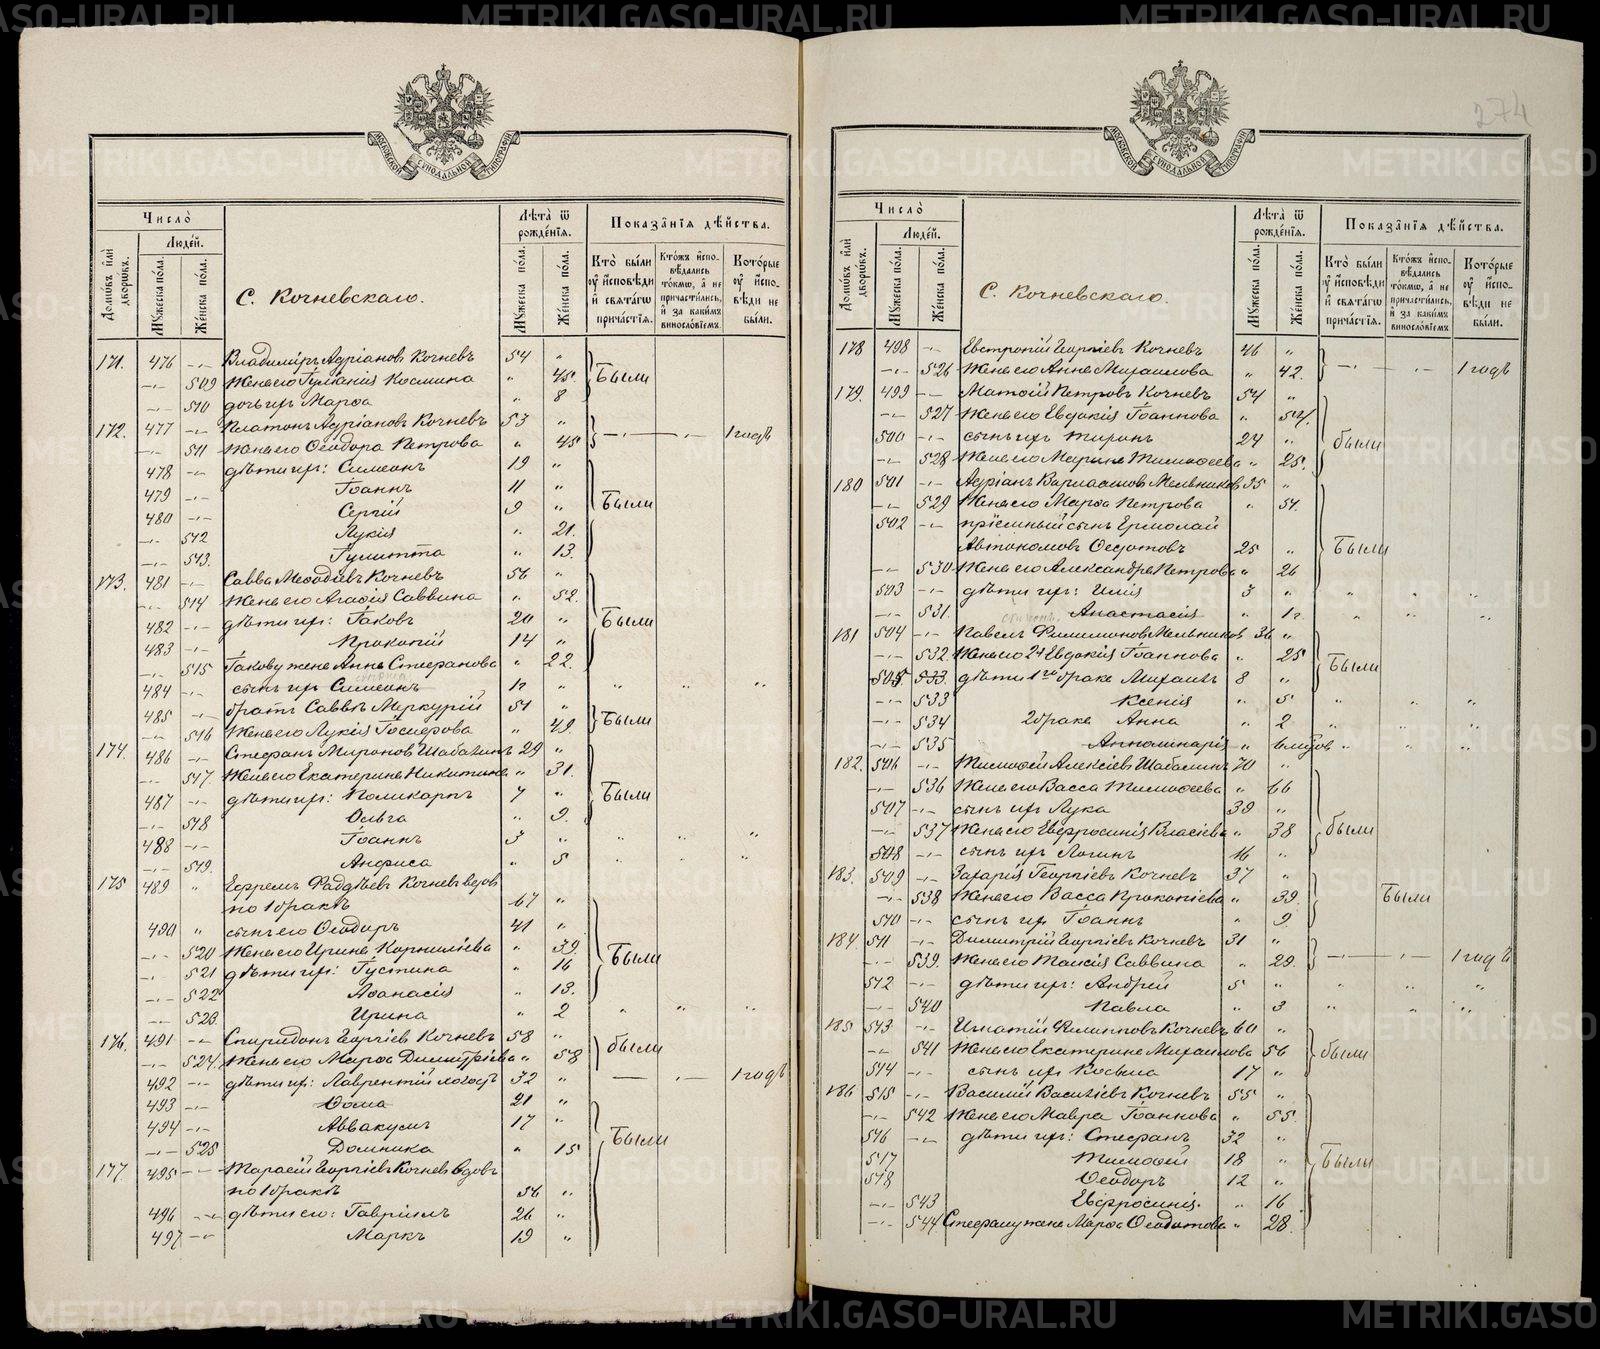 274
МОСКОВСКОЙ СѴНОДАЛЬНОЙ ТИПОГРАФІИ
Число̀
Людей.
Домѡвъ и҆лѝ дворѡвъ.
Мꙋжеска по́ла.
Же́нска по́ла.
С. Кочневскаго.
Лѣта̀ ѿ рожде́нїѧ.
Мꙋжеска по́ла.
Же́нска по́ла.
Показа̑нїѧ дѣ́йства.
Кто̀ бы́ли ᲂу҆ и҆сповѣди и҆ свѧта́гѡ прича́стїѧ.
Кто́жъ и҆спо-вѣ́дались то́кмѡ, а҆ не причасти́лись, и҆ за каки́мъ виносло́вїемъ.
Кото́рые ᲂу҆ и҆спо-вѣ́ди не бы́ли.
171. 476 -„- Владиміръ Адріановъ Кочневъ 54 „
-„- 509 Жена его Іуліанія Космина „ 45. Были
-„- 510 дочь ихъ Марѳа „ 8
172. 477 -„- Платонъ Адріановъ Кочневъ 53 „
-„- 511 Жена его Ѳеодора Петрова „ 45 -„- -„- 1 годъ
478 -„- дѣти ихъ: Симеонъ 19 „
479 -„- Іоаннъ 11 „
480 -„- Сергій 9 „ Были
-„- 512 Лукія „ 21.
-„- 513. Іулитта „ 13.
173. 481 -„- Савва Меѳодіевъ Кочневъ 56 „
-„- 514 Жена его Агаѳія Саввина „ 52.
482 -„- дѣти ихъ: Іаковъ 20 „ Были
483 -„- Прокопій 14 „
-„- 515 Іакову жена Анна Стефанова „ 22.
484 -„- сынъ ихъ Симеонъ 1г „ „ „ „
485 -„- братъ Саввѣ Меркурій 51 „
-„- 516 Жена его Лукія Іосифова „ 49. Были
174. 486 -„- Стефанъ Мироновъ Шабалинъ 29 „
-„- 517 Жена его Екатерина Никитина „ 31.
487 -„- дѣти ихъ: Поликарпъ 7 „ Были
-„- 518 Ольга „ 9.
488 -„- Іоаннъ 3 „ „ „ „
-„- 519. Анфиса „ 5 „ „ „
175 489 „ Ефремъ Фаддѣевъ Кочневъ вдов
по 1 бракѣ 67 „
490 „ сынъ его Ѳеодоръ 41 „
-„- 520 Жена его Ирина Корнилієва „ 39. Были
-„- 521 дѣти ихъ: Іустина „ 16
-„- 522 Аѳанасія „ 13.
-„- 523. Ирина „ 2 „ „ „
176. 491 -„- Спиридонъ Георгіевъ Кочневъ 58 „
-„- 524. Жена его Марѳа Димитріева „ 58 были
492 -„- дѣти ихъ: Лаврентій холост 32 „ -„- 1 годъ
493 -„- Ѳома 21 „
494 -„- Аввакумъ 17 „
-„- 525 Домника „ 15 Были
177. 495 -„- Тарасій Георгіевъ Кочневъ вдовъ
по 1 бракѣ 56 „
496 -„- дѣти его: Гавріилъ 26 „
497 -„- Маркъ 19 „
Число̀
Людей.
Домѡвъ и҆лѝ дворѡвъ.
Мꙋжеска по́ла.
Же́нска по́ла.
С. Кочневскаго.
Лѣта̀ ѿ рожде́нїѧ.
Мꙋжеска по́ла.
Же́нска по́ла.
Показа̑нїѧ дѣ́йства.
Кто̀ бы́ли ᲂу҆ и҆сповѣди и҆ свѧта́гѡ прича́стїѧ.
Кто́жъ и҆спо-вѣ́дались то́кмѡ, а҆ не причасти́лись, и҆ за каки́мъ виносло́вїемъ.
Кото́рые ᲂу҆ и҆спо-вѣ́ди не бы́ли.
178 498 -„- Евстропій Георгіевъ Кочневъ 46 „
-„- 526 Жена его Анна Михаилова „ 42. -„- -„- 1 годъ
179. 499 -„- Матѳій Петровъ Кочневъ 54 „
-„- 527 Жена его Евдокія Іоаннова „ 54.
500 -„- сынъ ихъ Тиронъ 24 „ были
-„- 528 Жена его Марина Тимоѳеева „ 25.
180 501 -„- Адріанъ Варлаамовъ Мельниковъ 35 „
-„- 529 Жена его Марѳа Петрова „ 54.
502 -„- пріемный сынъ Ермолай
Автономовъ Ѳедотовъ 25 „ Были
-„- 530 Жена его Александра Петрова „ 26
503 -„- дѣти ихъ: Илія 3 „ „ „ „
-„- 531. Анастасія „ 1г „ „ „
181 504 -„- Павелъ Филимоновъ Мельниковъ 36 „
-„- 532. Жена его 2я Евдокія Іоаннова „ 25 Были
505 533. дѣти 1го брака Михаилъ 8 „
-„- 533 Ксенія „ 5 „ „ „
-„- 534 2 брака Анна „ 2 „ „ „
-„- 535 Апполинарія „ „ „ „
182. 506 -„- Тимоѳей Алексіевъ Шабалинъ 70 „
-„- 536 Жена его Васса Тимоѳеева „ 66
507 -„- сынъ ихъ Лука 39 „
-„- 537 Жена его Евфросинія Власіева „ 38 были
508 -„- сынъ ихъ Логинъ 16 „
183. 509 -„- Захарія Георгіевъ Кочневъ 37 „
-„- 538 Жена его Васса Прокопіева „ 39. Были
510 -„- сынъ ихъ Іоаннъ „ 9
184. 511 -„- Димитрій Георгіевъ Кочневъ 31 „
-„- 539. Жена его Таисія Саввина „ 29. -„- -„- 1 годъ
512 -„- дѣти ихъ: Андрей 5 „ „ „ „
-„- 540 Павла „ 3 „ „ „
185 513 -„- Игнатій Филипповъ Кочневъ 60 „
-„- 541 Жена его Екатерина Михаилова 56 были
514 -„- сынъ ихъ Косьма 17 „
186 515 -„- Василій Василіевъ Кочневъ 55 „
-„- 542 Жена его Мавра Іоаннова „ 55.
516 -„- дѣти ихъ: Стефанъ 32 „
517 Тимоѳей 18 „ Были
518 Ѳеодоръ 12 „
-„- 543 Евфросинія. „ 16
-„- 544 Стефану жена Марѳа Ѳеодотова „ 28.